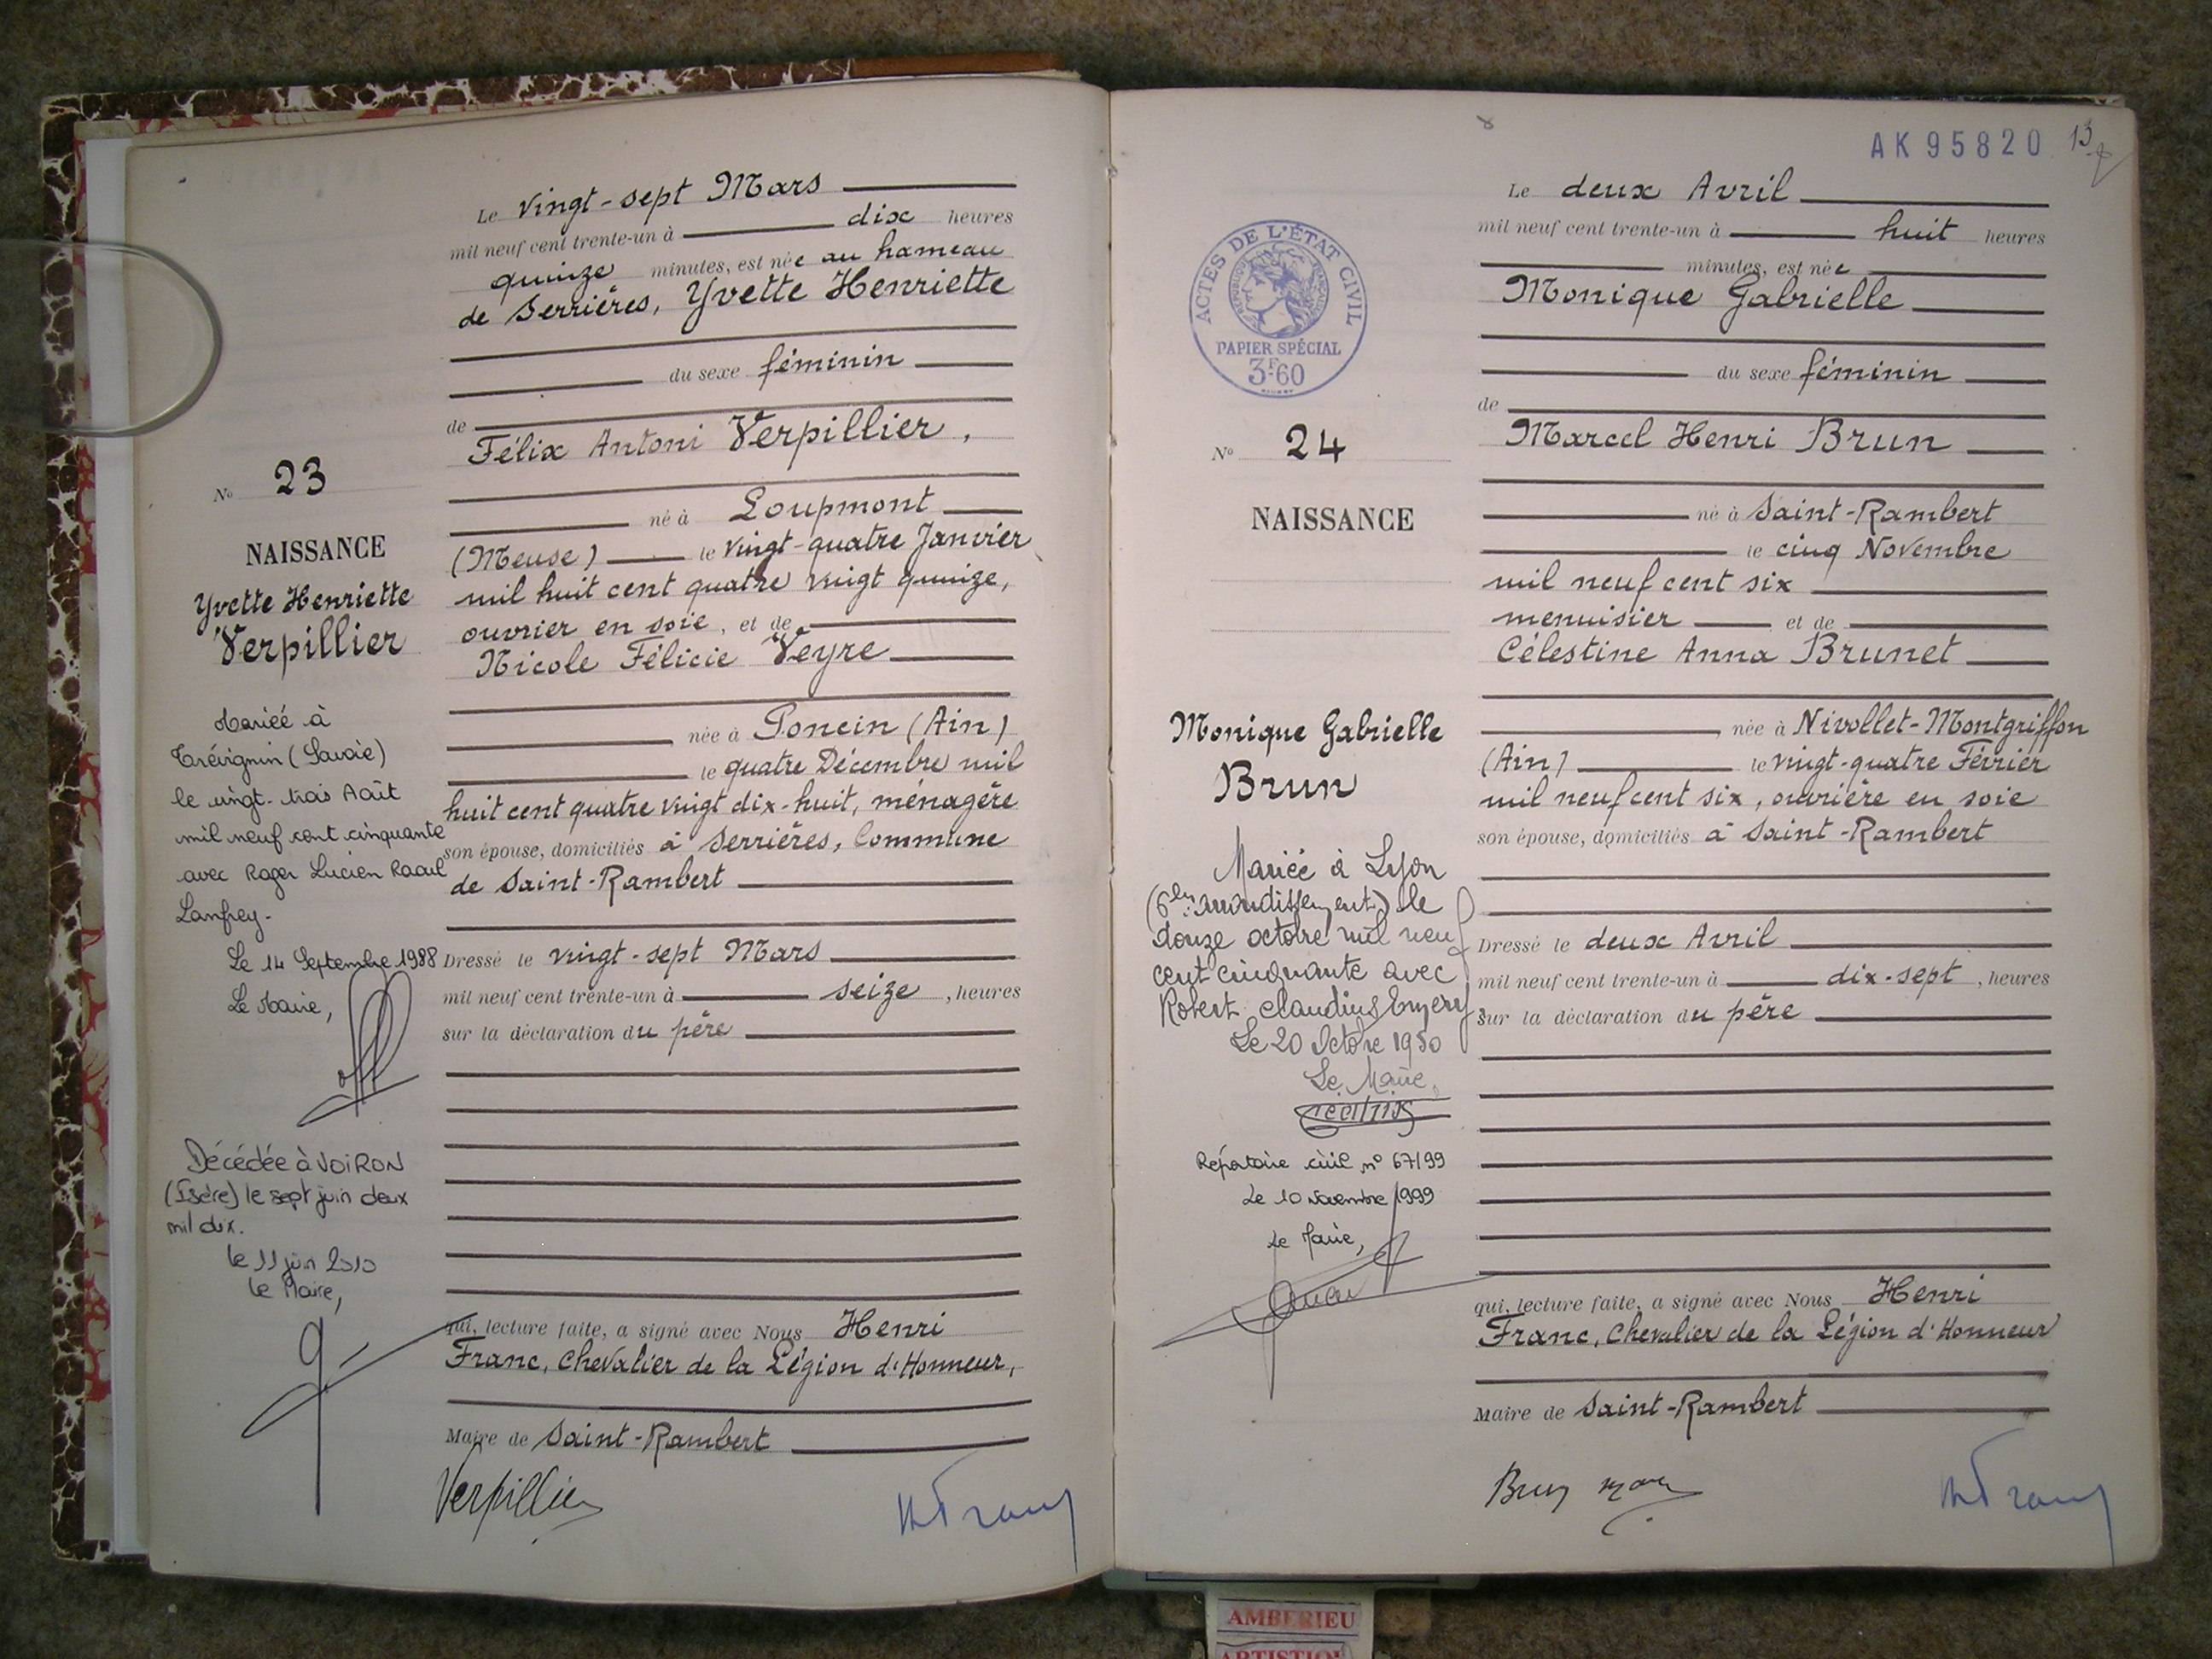 Le vingt-sept Mars
mil neuf cent trente-un à dix heures
quinze minutes, est née au hameau
de Serrières, Yvette Henriette
du sexe féminin
de
Félix Antoni Verpillier,
né à Loupmont
(Meuse) le vingt-quatre Janvier
mil huit cent quatre vingt quinze,
ouvrier en soie, et de
Nicole Félicie Veyre
née à Poncin (Ain)
le quatre Décembre mil
huit cent quatre vingt dix-huit, ménagère
son épouse, domiciliés à Serrières, Commune
de Saint-Rambert
Dressé le vingt-sept Mars
mil neuf cent trente-un à seize, heures
sur la déclaration du père
qui, lecture faite, a signé avec Nous Henri
Franc, Chevalier de la Légion d'Honneur,
Maire de Saint-Rambert
Verpillier
N° 23
NAISSANCE
Yvette Henriette
Verpillier
Mariée à
Trévignin (Savoie)
le vingt-trois Août
mil neuf cent cinquante
avec Roger Lucien Raoul
Lanfrey-
Le 14 Septembre 1988
Le Maire,
Décédée à VOIRON
(Isère) le sept juin deux
mil dix.
le 11 juin 2010
le Maire,
AK95820 13
Le deux Avril
mil neuf cent trente-un à huit heures
minutes, est née
Monique Gabrielle
du sexe féminin
de
Marcel Henri Brun
né à Saint-Rambert
le cinq Novembre
mil neuf cent six
menuisier et de
Célestine Anna Brunet
née à Nivollet-Montgriffon
(Ain) le vingt-quatre Février
mil neuf cent six, ouvrière en soie
son épouse, domiciliés à Saint-Rambert
Dressé le deux Avril
mil neuf cent trente-un à dix-sept, heures
sur la déclaration du père
qui, lecture faite, a signé avec Nous Henri
Franc, Chevalier de la Légion d'Honneur
Maire de Saint-Rambert
Brun
ACTES DE L'ÉTAT CIVIL
RÉPUBLIQUE FRANÇAISE
PAPIER SPÉCIAL
3F60
N° 24
NAISSANCE
Monique Gabrielle
Brun
Mariée à Lyon
(6ème arrondissement) le
douze octobre mil neuf
cent cinquante avec
Robert Claudius
Le 20 Octobre 1950
Le Maire,
Répertoire civil n° 67/99
Le 10 Novembre 1999
Le Maire,
AMBERIEU